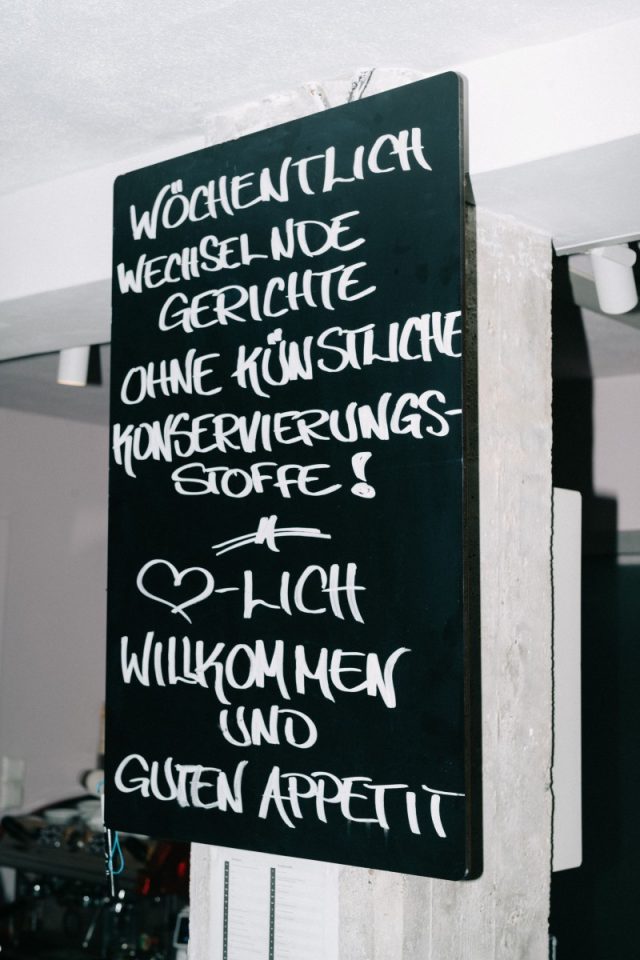 WÖCHENTLICH
WECHSELNDE
GERICHTE
OHNE KÜNSTLICHE
KONSERVIERUNGS-
STOFFE!
♡-LICH
WILLKOMMEN
UND
GUTEN APPETIT